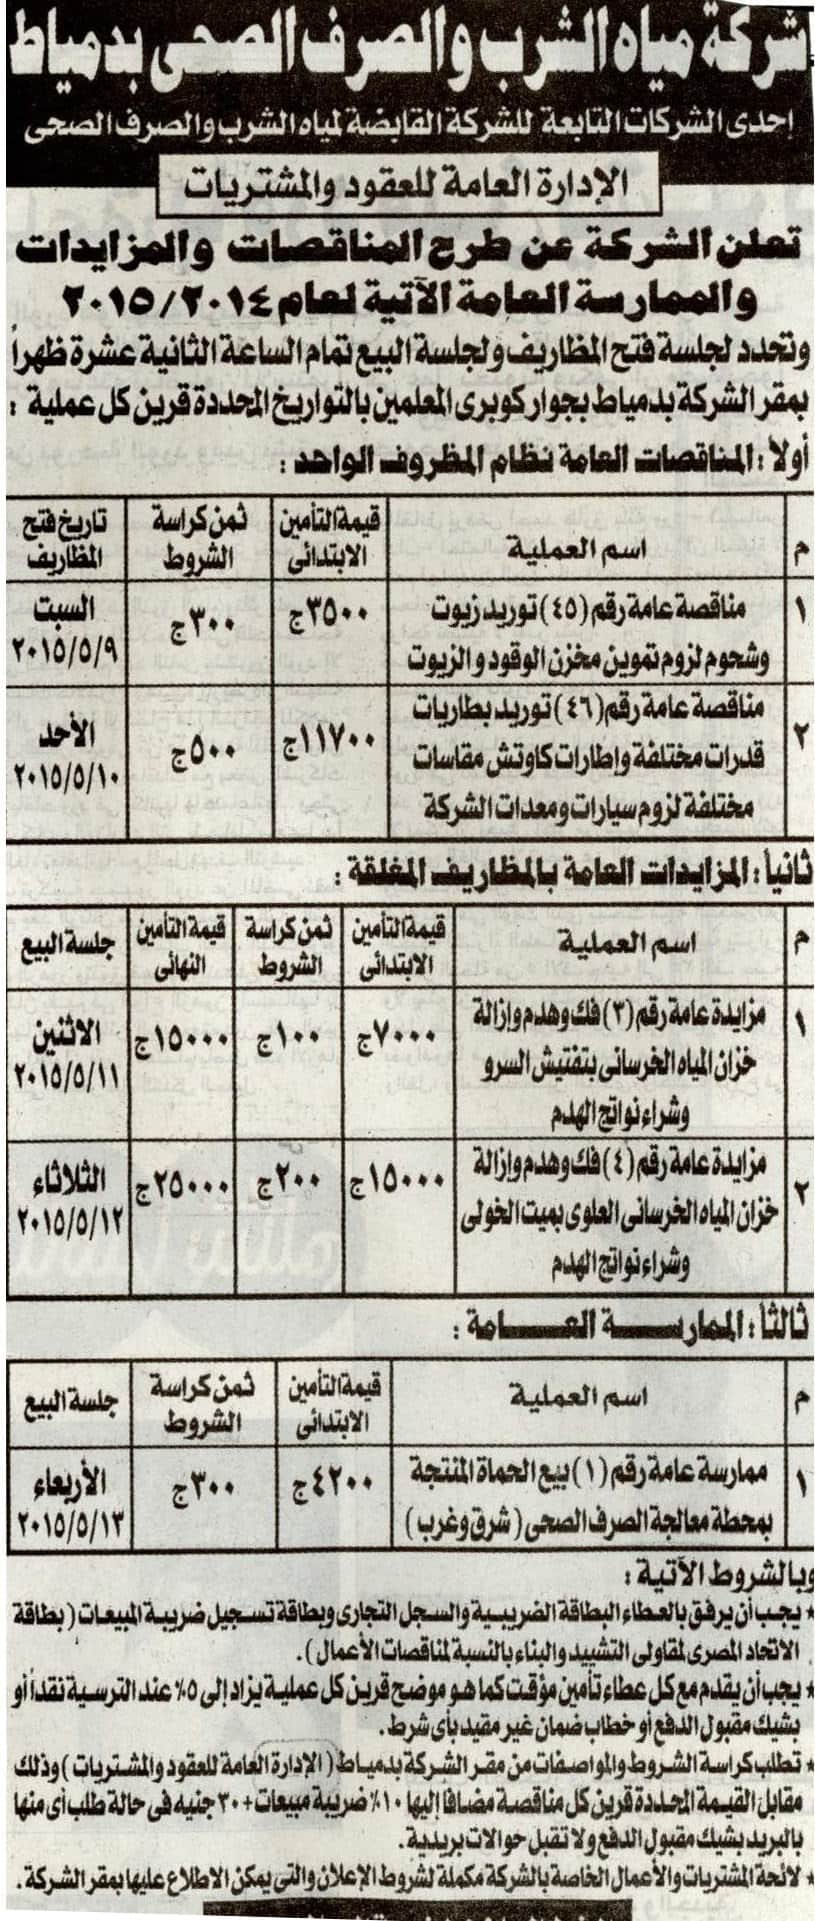 شركة مياه الشرب والصرف الصحى بدمياط
إحدى الشركات التابعة للشركة القابضة لمياه الشرب والصرف الصحى
الإدارة العامة للعقود والمشتريات
تعلن الشركة عن طرح المناقصات والمزايدات
والممارسة العامة الآتية لعام ٢٠١٥/٢٠١٤
وتحدد لجلسة فتح المظاريف ولجلسة البيع تمام الساعة الثانية عشرة ظهراً
بمقر الشركة بدمياط بجوار كوبرى المعلمين بالتواريخ المحددة قرين كل عملية :
أولاً : المناقصات العامة نظام المظروف الواحد :
م اسم العملية قيمة التأمين الابتدائى ثمن كراسة الشروط تاريخ فتح المظاريف
١ مناقصة عامة رقم (٤٥) توريد زيوت ٣٥٠٠ج ٣٠٠ج السبت
وشحوم لزوم تموين مخزن الوقود والزيوت ٢٠١٥/٥/٩
٢ مناقصة عامة رقم (٤٦) توريد بطاريات ١١٧٠٠ج ٥٠٠ج الأحد
قدرات مختلفة وإطارات كاوتش مقاسات ٢٠١٥/٥/١٠
مختلفة لزوم سيارات ومعدات الشركة
ثانياً : المزايدات العامة بالمظاريف المغلقة :
م اسم العملية قيمة التأمين الابتدائى ثمن كراسة الشروط قيمة التأمين النهائى جلسة البيع
١ مزايدة عامة رقم (٣) فك وهدم وإزالة ٧٠٠٠ج ١٠٠ج ١٥٠٠٠ج الاثنين
خزان المياه الخرسانى بتفتيش السرو ٢٠١٥/٥/١١
وشراء نواتج الهدم
٢ مزايدة عامة رقم (٤) فك وهدم وإزالة ١٥٠٠٠ج ٢٠٠ج ٢٥٠٠٠ج الثلاثاء
خزان المياه الخرسانى العلوى بميت الخولى ٢٠١٥/٥/١٢
وشراء نواتج الهدم
ثالثاً : الممارسة العامة :
م اسم العملية قيمة التأمين الابتدائى ثمن كراسة الشروط جلسة البيع
١ ممارسة عامة رقم (١) بيع الحماة المنتجة ٤٢٠٠ج ٣٠٠ج الأربعاء
بمحطة معالجة الصرف الصحى (شرق وغرب) ٢٠١٥/٥/١٣
وبالشروط الآتية :
* يجب أن يرفق بالعطاء البطاقة الضريبية والسجل التجارى وبطاقة تسجيل ضريبة المبيعات (بطاقة
الاتحاد المصرى لمقاولى التشييد والبناء بالنسبة لمناقصات الأعمال).
* يجب أن يقدم مع كل عطاء تأمين مؤقت كما هو موضح قرين كل عملية يزاد إلى ٥٪ عند الترسية نقداً أو
بشيك مقبول الدفع أو خطاب ضمان غير مقيد بأى شرط.
* تطلب كراسة الشروط والمواصفات من مقر الشركة بدمياط (الإدارة العامة للعقود والمشتريات) وذلك
مقابل القيمة المحددة قرين كل مناقصة مضافا إليها ١٠٪ ضريبة مبيعات + ٣٠ جنيه فى حالة طلب أى منها
بالبريد بشيك مقبول الدفع ولا تقبل حوالات بريدية.
* لائحة المشتريات والأعمال الخاصة بالشركة مكملة لشروط الإعلان والتى يمكن الاطلاع عليها بمقر الشركة.